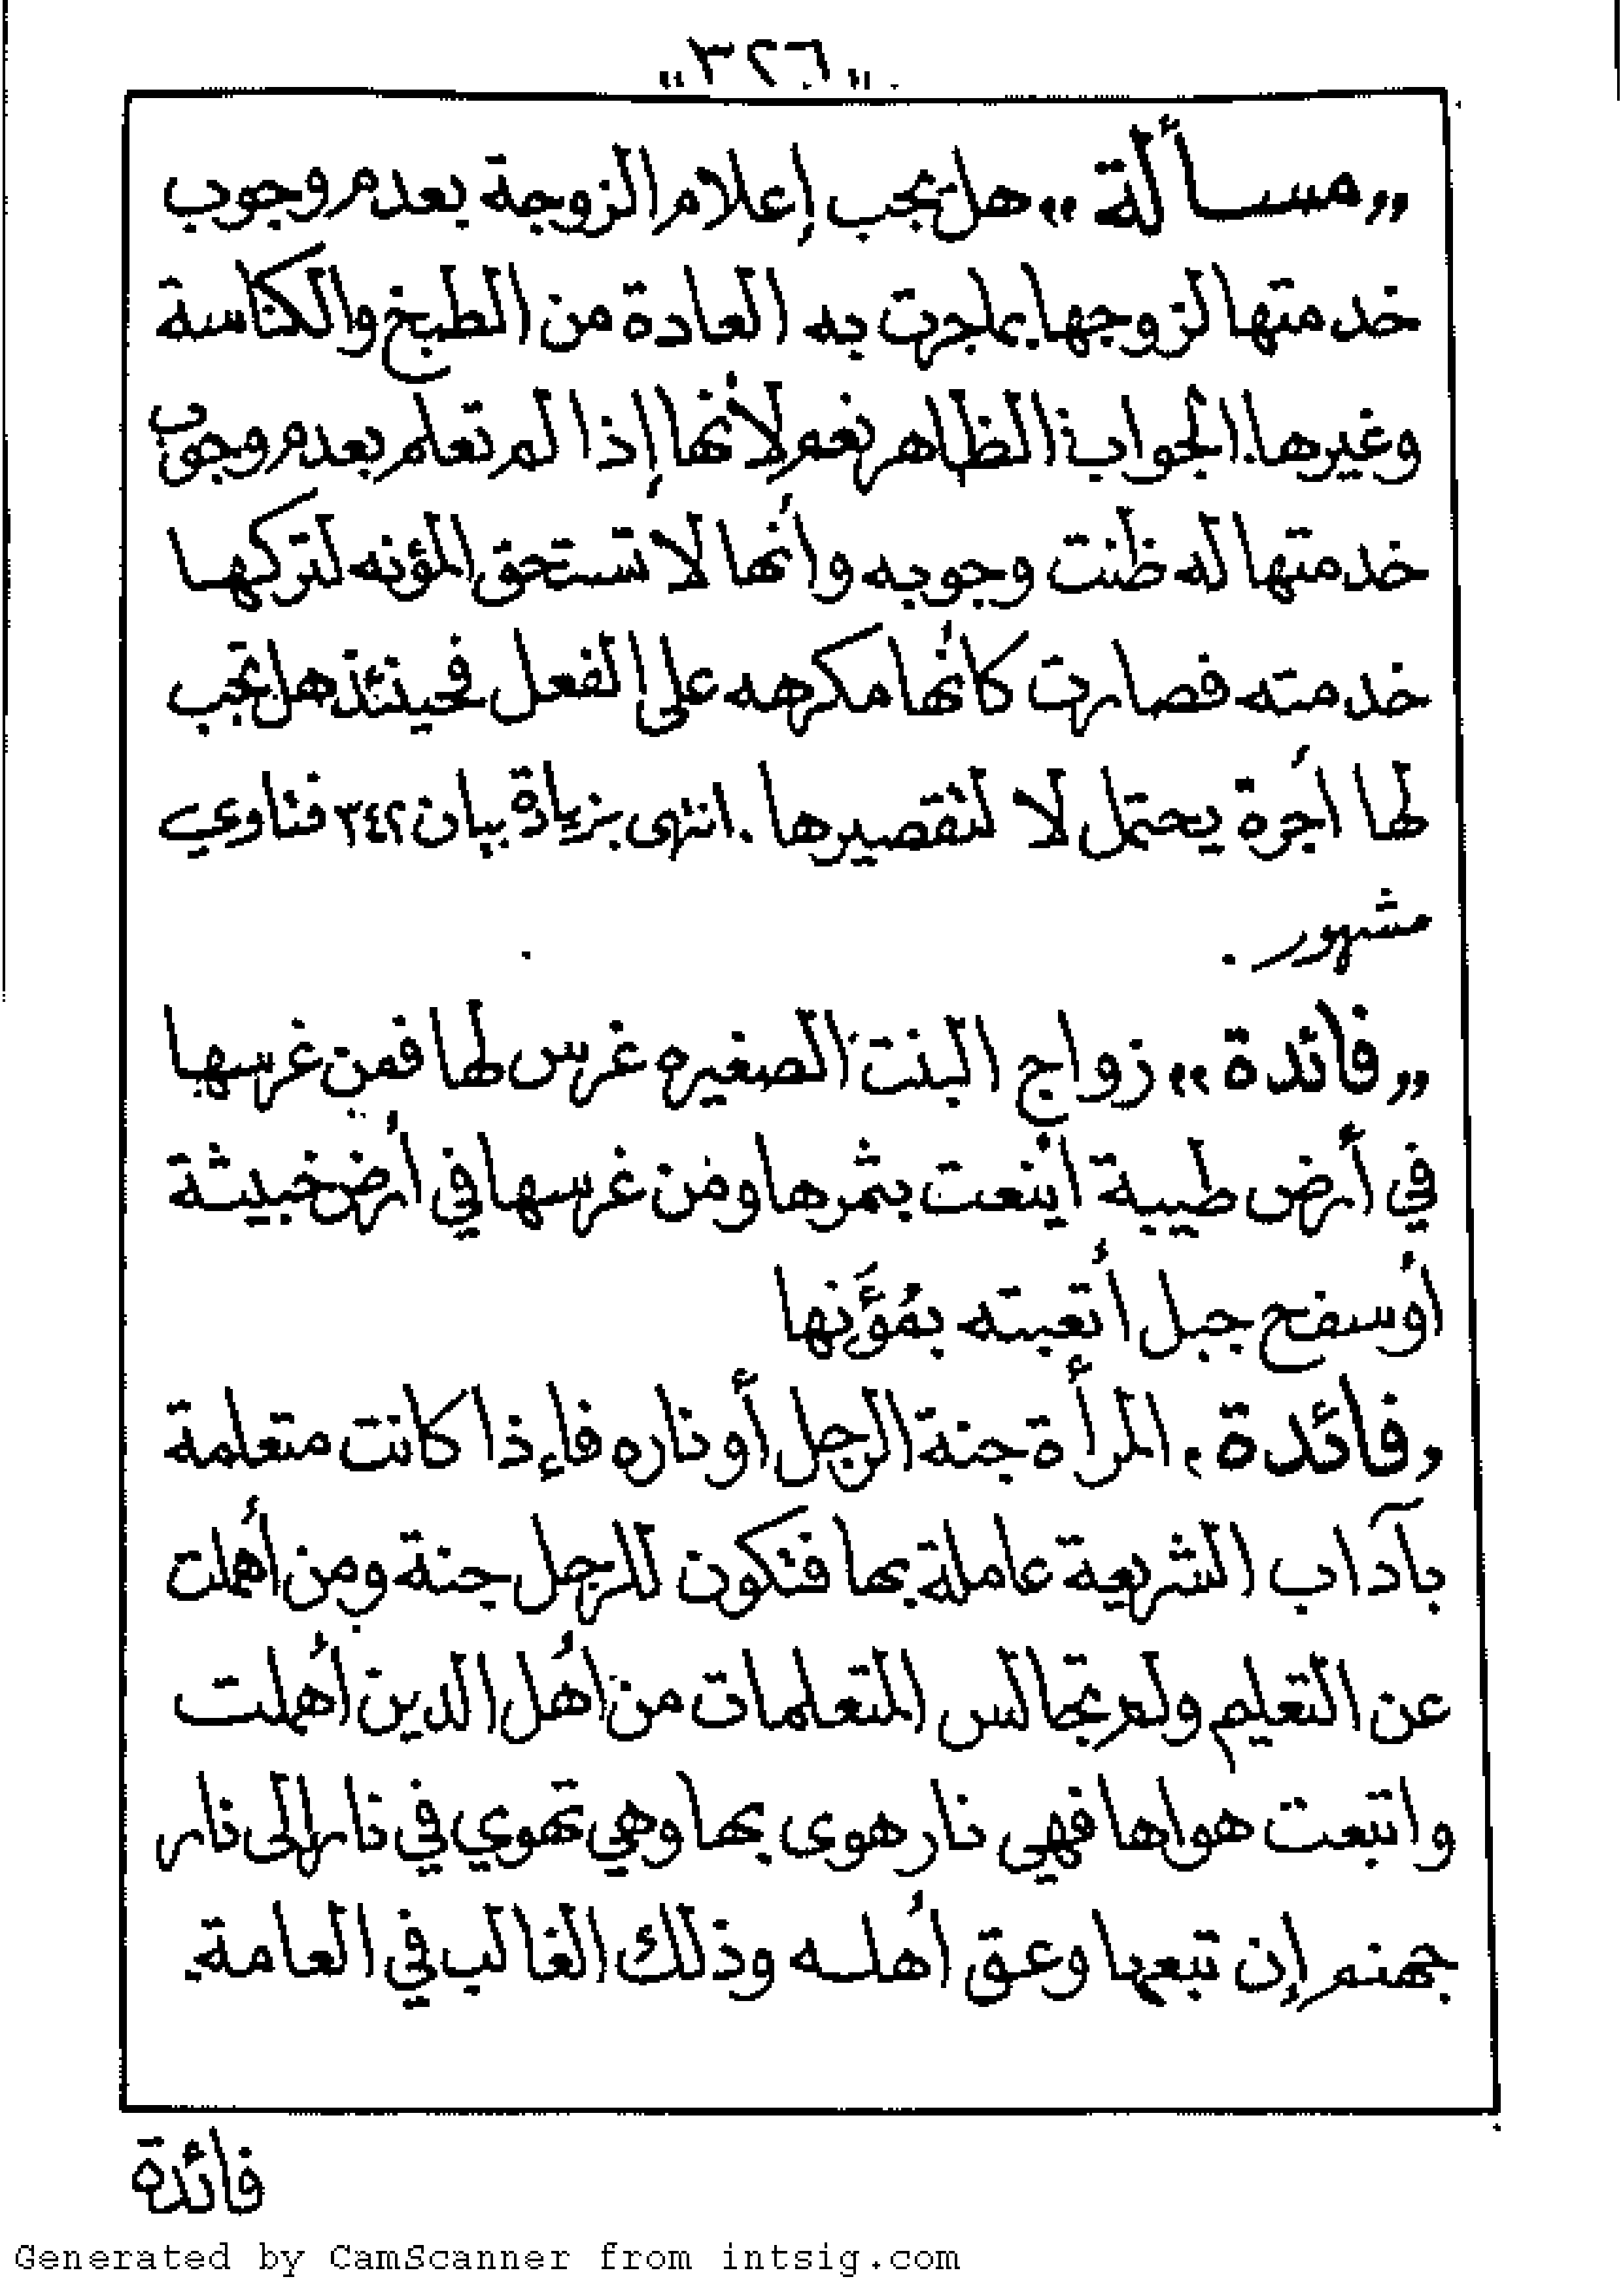 "٣٢٦"
"مسألة" هل يجب إعلام الزوجة بعدم وجوب
خدمتها لزوجها بما جرت به العادة من الطبخ والكناسة
وغيرها. الجواب: الظاهر نعم لأنها إذا لم تعلم بعدم وجوب
خدمتها له ظنت وجوبه وأنها لا تستحق المؤنه لتركها
خدمته فصارت كأنها مكرهه على الفعل فحينئذ هل تجب
لها أجرة يحتمل لا لتقصيرها. انتهى بزيادة بيان ٣٤٢ فتاوي
مشهور.
"فائدة" زواج البنت الصغيره غرس لها فمن غرسها
في أرض طيبة اينعت بثمرها ومن غرسها في أرض خبيثة
أو سفح جبل أتعبته بمُؤَنها
"فائدة" المرأة جنة الرجل أو ناره فإذا كانت متعلمة
بآداب الشريعة عاملة بها فتكون للرجل جنة ومن أهملت
عن التعليم ولم تجالس المتعلمات من أهل الدين أهملت
واتبعت هواها فهي نار هوى بها وهي تهوي في نار إلى نار
جهنم إن تبعها وعق أهله وذلك الغالب في العامة.
فائدة
Generated by CamScanner from intsig.com